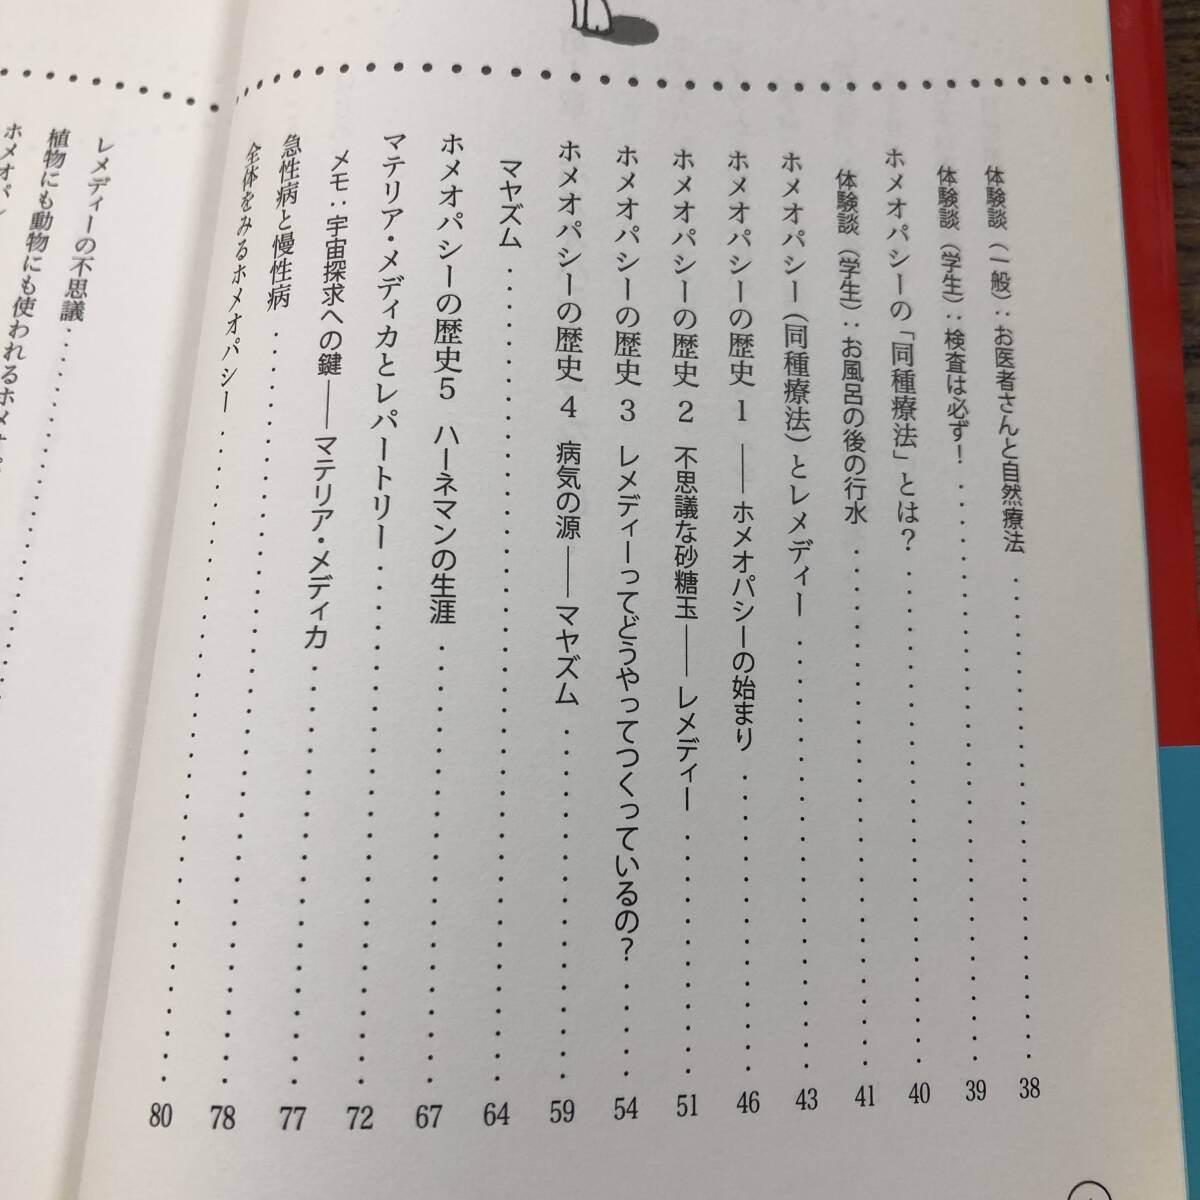 体験談（一般）：お医者さんと自然療法 ‥‥‥ 38
体験談（学生）：検査は必ず！ ‥‥‥ 39
ホメオパシーの「同種療法」とは？ ‥‥‥ 40
体験談（学生）：お風呂の後の行水 ‥‥‥ 41
ホメオパシー（同種療法）とレメディー ‥‥‥ 43
ホメオパシーの歴史 1 ――ホメオパシーの始まり ‥‥‥ 46
ホメオパシーの歴史 2 不思議な砂糖玉――レメディー ‥‥‥ 51
ホメオパシーの歴史 3 レメディーってどうやってつくっているの？ ‥‥‥ 54
ホメオパシーの歴史 4 病気の源――マヤズム ‥‥‥ 59
マヤズム ‥‥‥ 64
ホメオパシーの歴史５ ハーネマンの生涯 ‥‥‥ 67
マテリア・メディカとレパートリー ‥‥‥ 72
メモ：宇宙探求への鍵――マテリア・メディカ ‥‥‥ 77
急性病と慢性病 ‥‥‥ 78
全体をみるホメオパシー ‥‥‥ 80
レメディーの不思議 ‥‥‥
植物にも動物にも使われるホメオ
ホメオパシ